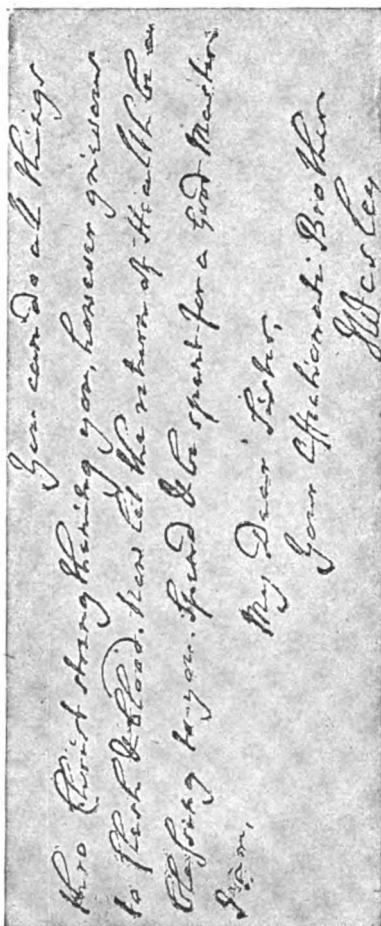 You can do all things
thro Christ strengthening you, however grievous
to flesh & blood. Now let the return of Health be a
blessing to you. Spend & be spent for a Good Master.
I am,
My Dear Sister,
Your Affectionate Brother
JWesley